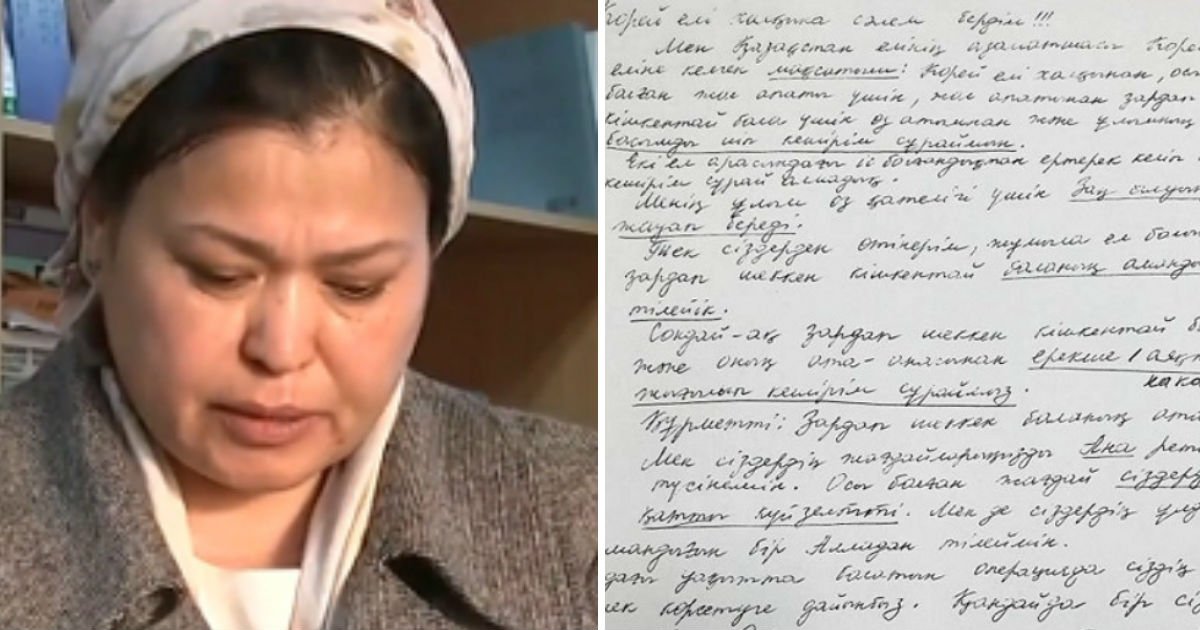 Корей елі халқына сәлем бердім!!!
Мен Қазақстан елінің азаматшасы Корей
еліне келген мақсатым: Корей елі халқынан, осы
болған жол апаты үшін, жол апатынан зардап
кішкентай бала үшін өз атымнан және ұлымның
басымды иіп кешірім сұраймын.
Екі ел арасындағы іс болғандықтан ертерек келіп
кешірім сұрай алмадық.
Менің ұлым өз қателігі үшін Заң алдын
жауап береді.
Тек сіздерден өтінерім, жұмыла ел болып
зардап шеккен кішкентай баланың амандығ
тілейік.
Сондай-ақ зардап шеккен кішкентай б
және оның ата-анасынан ерекше
жығылып кешірім сұраймыз.
Құрметті: Зардап шеккен баланың ата
Мен сіздердің жағдайларыңызды Ана рет
түсінемін. Осы болған жағдай сіздерд
қатты күйзелтті. Мен де сіздердің ұлд
мандығын бір Алладан тілеймін.
дағы уақытта болатын операцияда сіздің
мек көрсетуге дайынбыз. Қандайда бір сіз